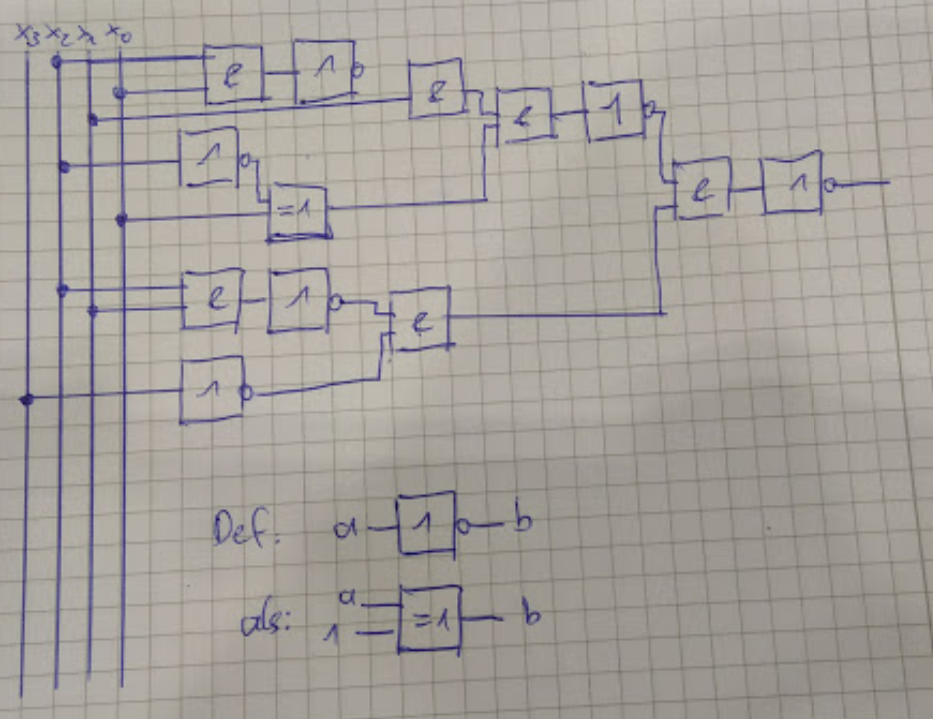 x3 x2 x1 x0
e 1 e e 1
1 =1 e 1
e 1 e
1
Def: a 1 b
als: a 1 =1 b